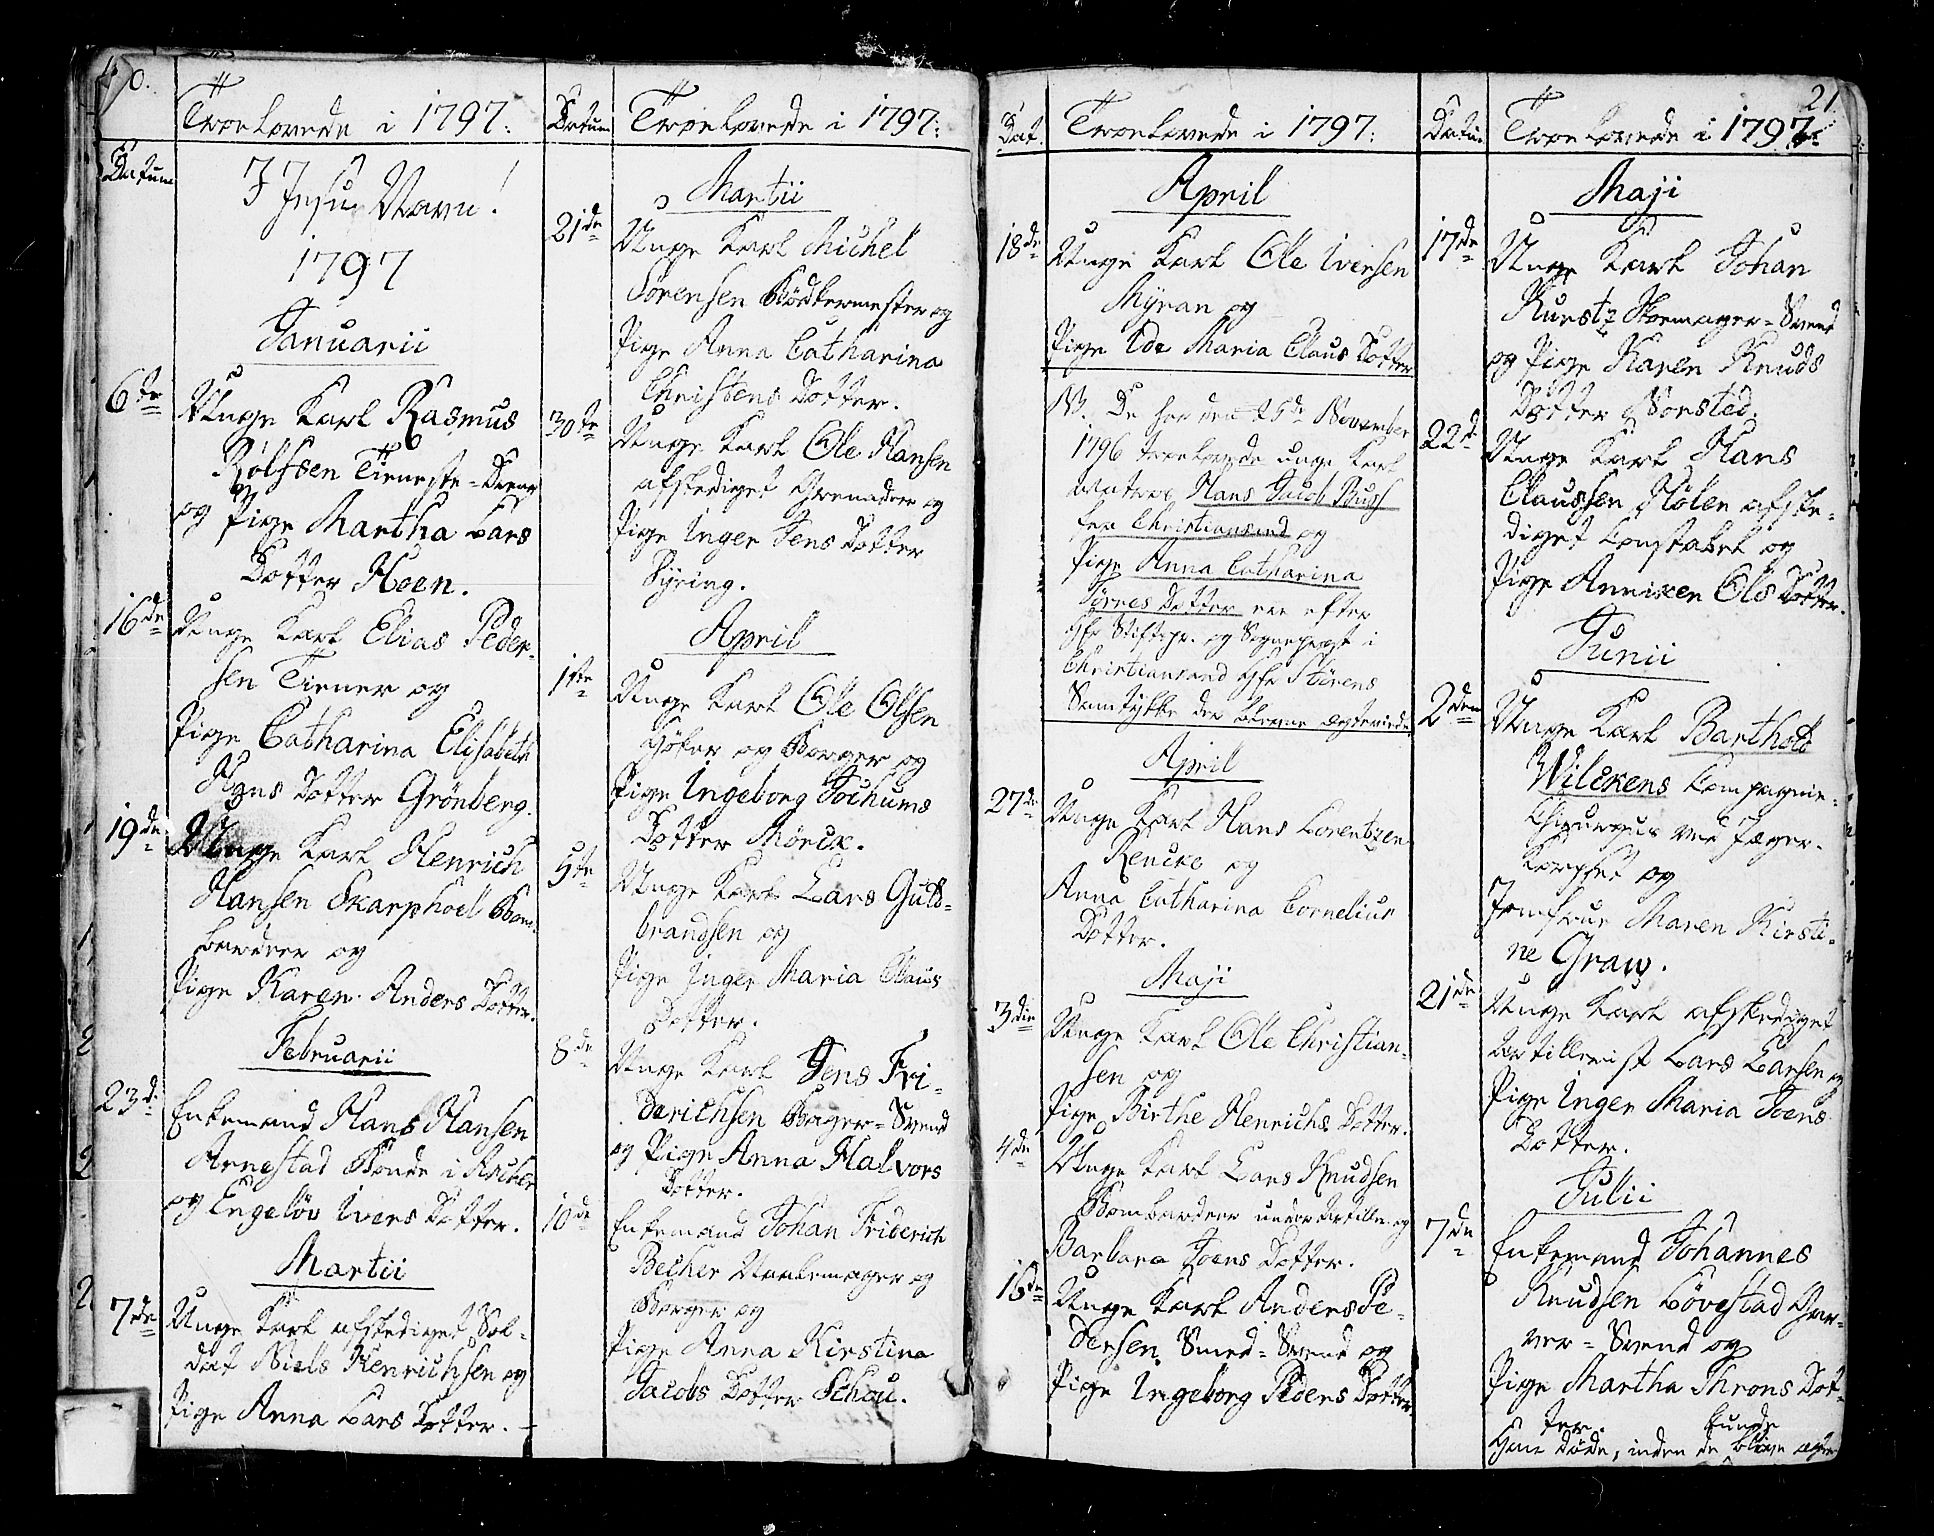 Troelovede i 1797.
Datum
I Jesu Navn!
1797
Januarii
6te
Unge Karl Rasmus
Rolfsen Tieneste-Dreng
og Pige Martha Lars
Dotter Hoen.
16de
Unge Karl Elias Peder-
sen Tiener og
Pige Catharina Elisabeth
Dotter Grönberg.
19de
Unge Karl Henrich
Hansen Skarphoel Bom-
barderer og
Pige Karen Anders Dotter.
Februarii
23d
Enkemand Hans Hansen
Arnestad Bonde i
og Engeløv Ivers Dotter.
Martii
7de
Unge Karl afskediget Sol-
dat Niels Henrichsen og
Pige Anna Lars Dotter.
Datum
Troelovede i 1797.
Martii
21de
Unge Karl Michel
Sörensen Bödkermester og
Pige Anna Catharina
Christens Dotter.
30te
Unge Karl Ole Hansen
afskediget Grenadeer og
Pige Inger Jens Dotter
Byring.
April
1ste
Unge Karl Ole Olsen
Höker og Borger og
Pige Ingeborg Jochums
Dotter Mörck.
5te
Unge Karl Lars Guld-
brandsen og
Pige Inger Maria Claus
Dotter.
8de
Unge Karl Jens Fri-
derichsen Bager-Svend
og Pige Anna Halvors
Dotter.
10de
Enkemand Johan Friderich
Becher Naalemager og
Borger og
Pige Anna Kirstina
Jacobs Dotter Schou.
Dat.
Troelovede i 1797.
April
18de
Unge Karl Ole Iversen
Myran og
Pige Ide Maria Claus Dotter
NB. De her den 25de November
1796 troelovede unge Karl
Matros Hans Jacob Busch
fra Christiansand og
Pige Anna Catharina
Dotter ere efter
Hr Stiftspr. og Sogneprest i
Christiansand Hr Störens
Samtykke der blevne ægteviede
April
27de
Unge Karl Hans Lorentzen
Rencke og
Anna Catharina Cornelius
Dotter.
Maji
3die
Unge Karl Ole Christian-
sen og
Pige Birthe Henrichs Dotter.
4de
Unge Karl Lars Knudsen
Bombardeer under Artill. og
Barbara Joens Dotter.
15de
Unge Karl Anders Pe-
dersen Smed-Svend og
Pige Ingeborg Peders Dotter
Datum
Troelovede i 1797.
21.
Maji
17de
Unge Karl Johan
Kurstz Skoemager-Svend
og Pige Karen Knuds
Dotter Norsted.
22d
Unge Karl Hans
Claussen Holen afske-
diget Constabel og
Pige Anniken Ols Dotter.
Junii
2den
Unge Karl Barthold
Wilckens Compagnie-
Chirurgus ved Jæger-
Korpset og
Jomfrue Maren Kirsti-
ne Graw.
21de
Unge Karl afskediget
Artillerist Lars Larsen og
Pige Inger Maria Joens
Dotter.
Julii
7de
Enkemand Johannes
Knudsen Lövestad Gar-
ver-Svend og
Pige Martha Throns Dot-
ter.
Hun döde, inden de kunde blive